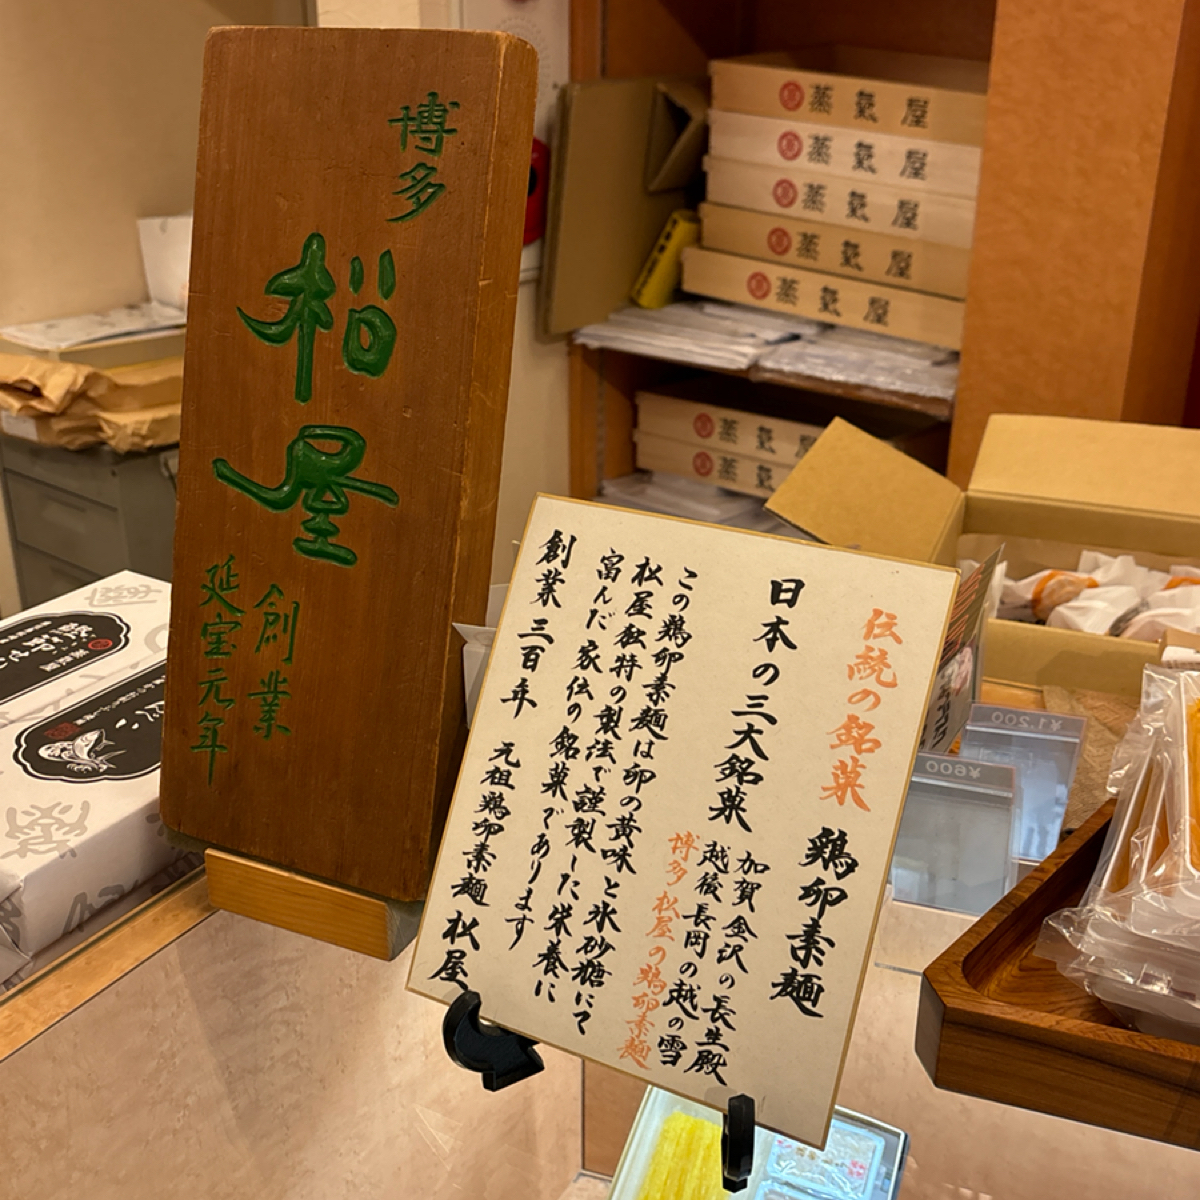 博多
松屋
創業
延宝元年
伝統の銘菓 鶏卵素麺
日本の三大銘菓
加賀金沢の長生殿
越後長岡の越の雪
博多松屋の鶏卵素麺
この鶏卵素麺は卵の黄味と氷砂糖にて
松屋独特の製法で謹製した栄養に
富んだ家伝の銘菓であります
創業三百年 元祖鶏卵素麺 松屋
蒸氣屋
蒸氣屋
蒸氣屋
蒸氣屋
蒸氣屋
蒸氣屋
蒸氣
¥1,200
¥600